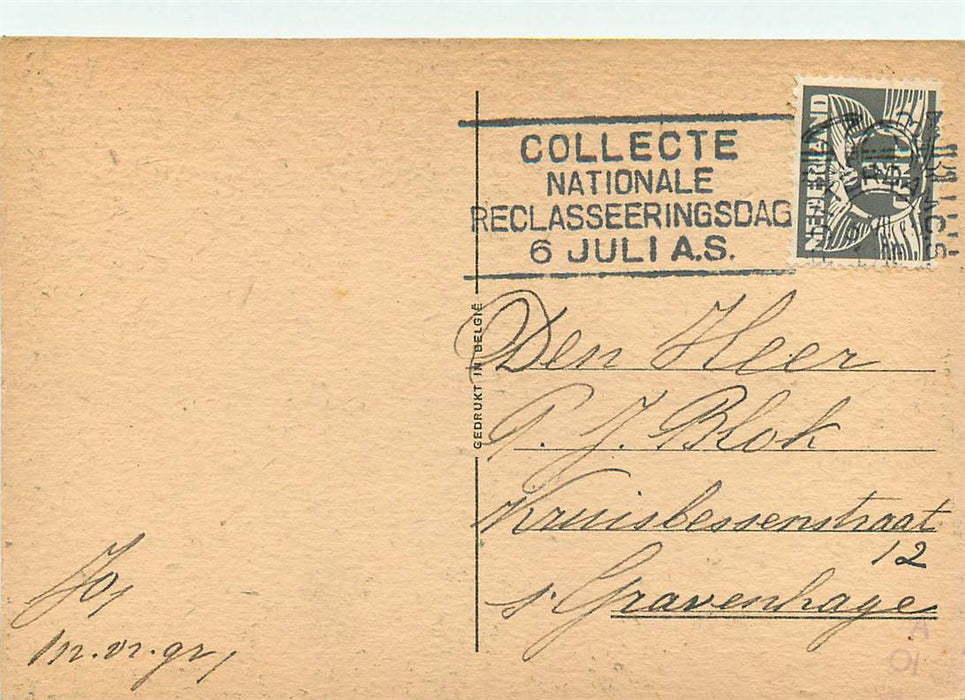 COLLECTE
NATIONALE
RECLASSEERINGSDAG
6 JULI A.S.
NEDERLAND
CENT
GEDRUKT IN BELGIË
Den Heer
P. J. Blok
Kruisbessenstraat
12
s' Gravenhage
Jo,
m. vr. gr,
A